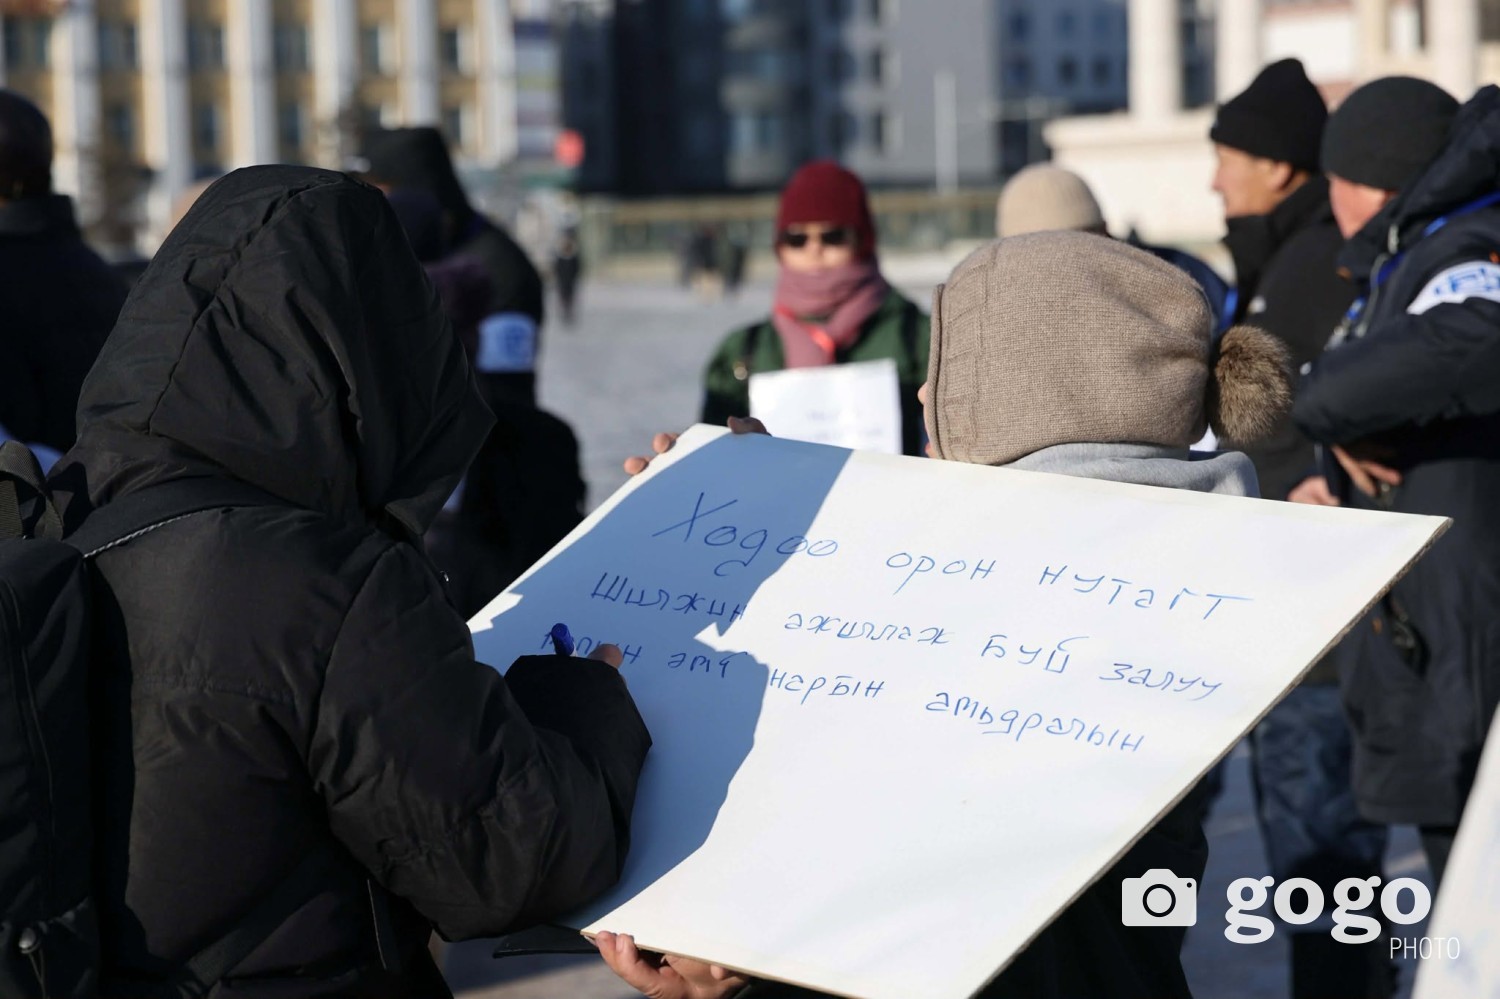 Ходоо орон нутагт
Шилжин ажиллаж буй залуу
эмч нарын амьдралын
gogo
PHOTO